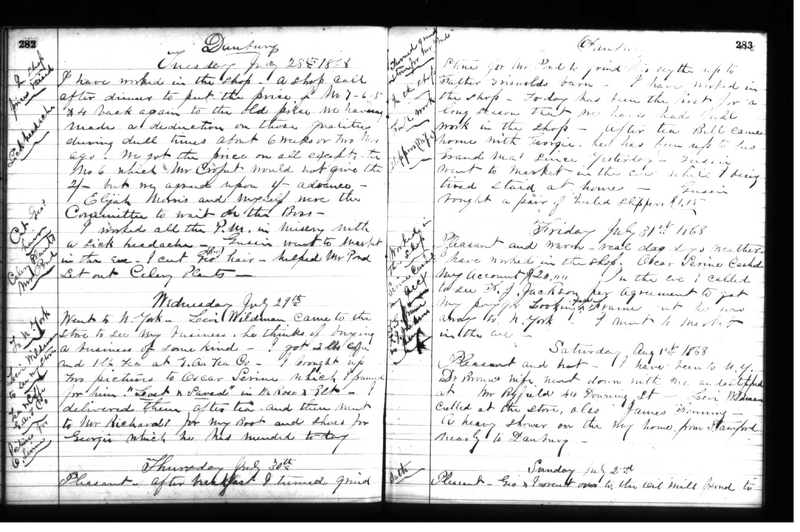 282
Danbury
Tuesday July 28th 1868
In shop
prices raised
Sick headache
I have worked in the shop - a shop call
after dinner to put the price of No 7-6-5
& 4 back again to the old price we having
made a deduction on those qualities
during dull times about 6 weeks or two mos
ago. We got the price on all except the
No 6 which Mr Croft would not give the
2/- but we agreed upon 1/- advance -
Elijah Morris and myself were the
Committee to wait on the Boss -
Cut Geo's
hair
Celery Plants
Mr Pond
I worked all the P.M. in misery with
a sick headache - Gussie went to market
in the eve - I cut Geo's hair - helped Mr Pond
Set out Celery Plants -
Wednesday July 29th
To N. York
Levi Wildman
to see my store
Tea & Coffee
Pictures for
O Serine
Went to N. York - Levi Wildman came to the
Store to see my business, he thinks of buying
a business of some kind - I got 2 lbs Coffee
and 1 lb Tea at G. A. Tea Co - I brought up
Two pictures to Oscar Serine which I framed
for him "Lost & Saved" in
I delivered them after tea and then went
to Mr Richards for my Boot and shoes for
Georgie which he has mended to-day
Thursday July 30th
Pleasant - After breakfast I turned grind
283
Danbury
Turned grind
stone for Mr Pond
In the shop
Full work
Slippers
Stone for Mr Pond to grind his scythe up to
Griswolds barn - I have worked in
the shop - To-day has been the first for a
long season that we have had full
work in the shop - After tea Bell came
home with Georgie. he has been up to his
Grand Ma's since yesterday - Gussie
went to Market in the eve while I being
tired staid at home - Gussie
bought a pair of Slippers $1.15
Friday July 31st 1868
Worked in
the shop
Pleasant and warm - real dog days weather
I have worked in the shop. Oscar Serine Cashed
my account $20,00 In the eve I called
to see F. J. Jackson per agreement to get
my pay for Looking Frame but he was
away to N. York! I went to market
in the eve -
Saturday Aug 1st 1868
Pleasant and hot - I have been to N.Y.
Dr Brown's wife went down with me and stopped
at Mr 40 Downing St - Levi Wildman
Called at the store, also James Downing -
A heavy shower on the way home from Stamford
nearly to Danbury -
Sunday July 2nd
Bath
Pleasant - Geo & I went over to the Oil Mill Pond to